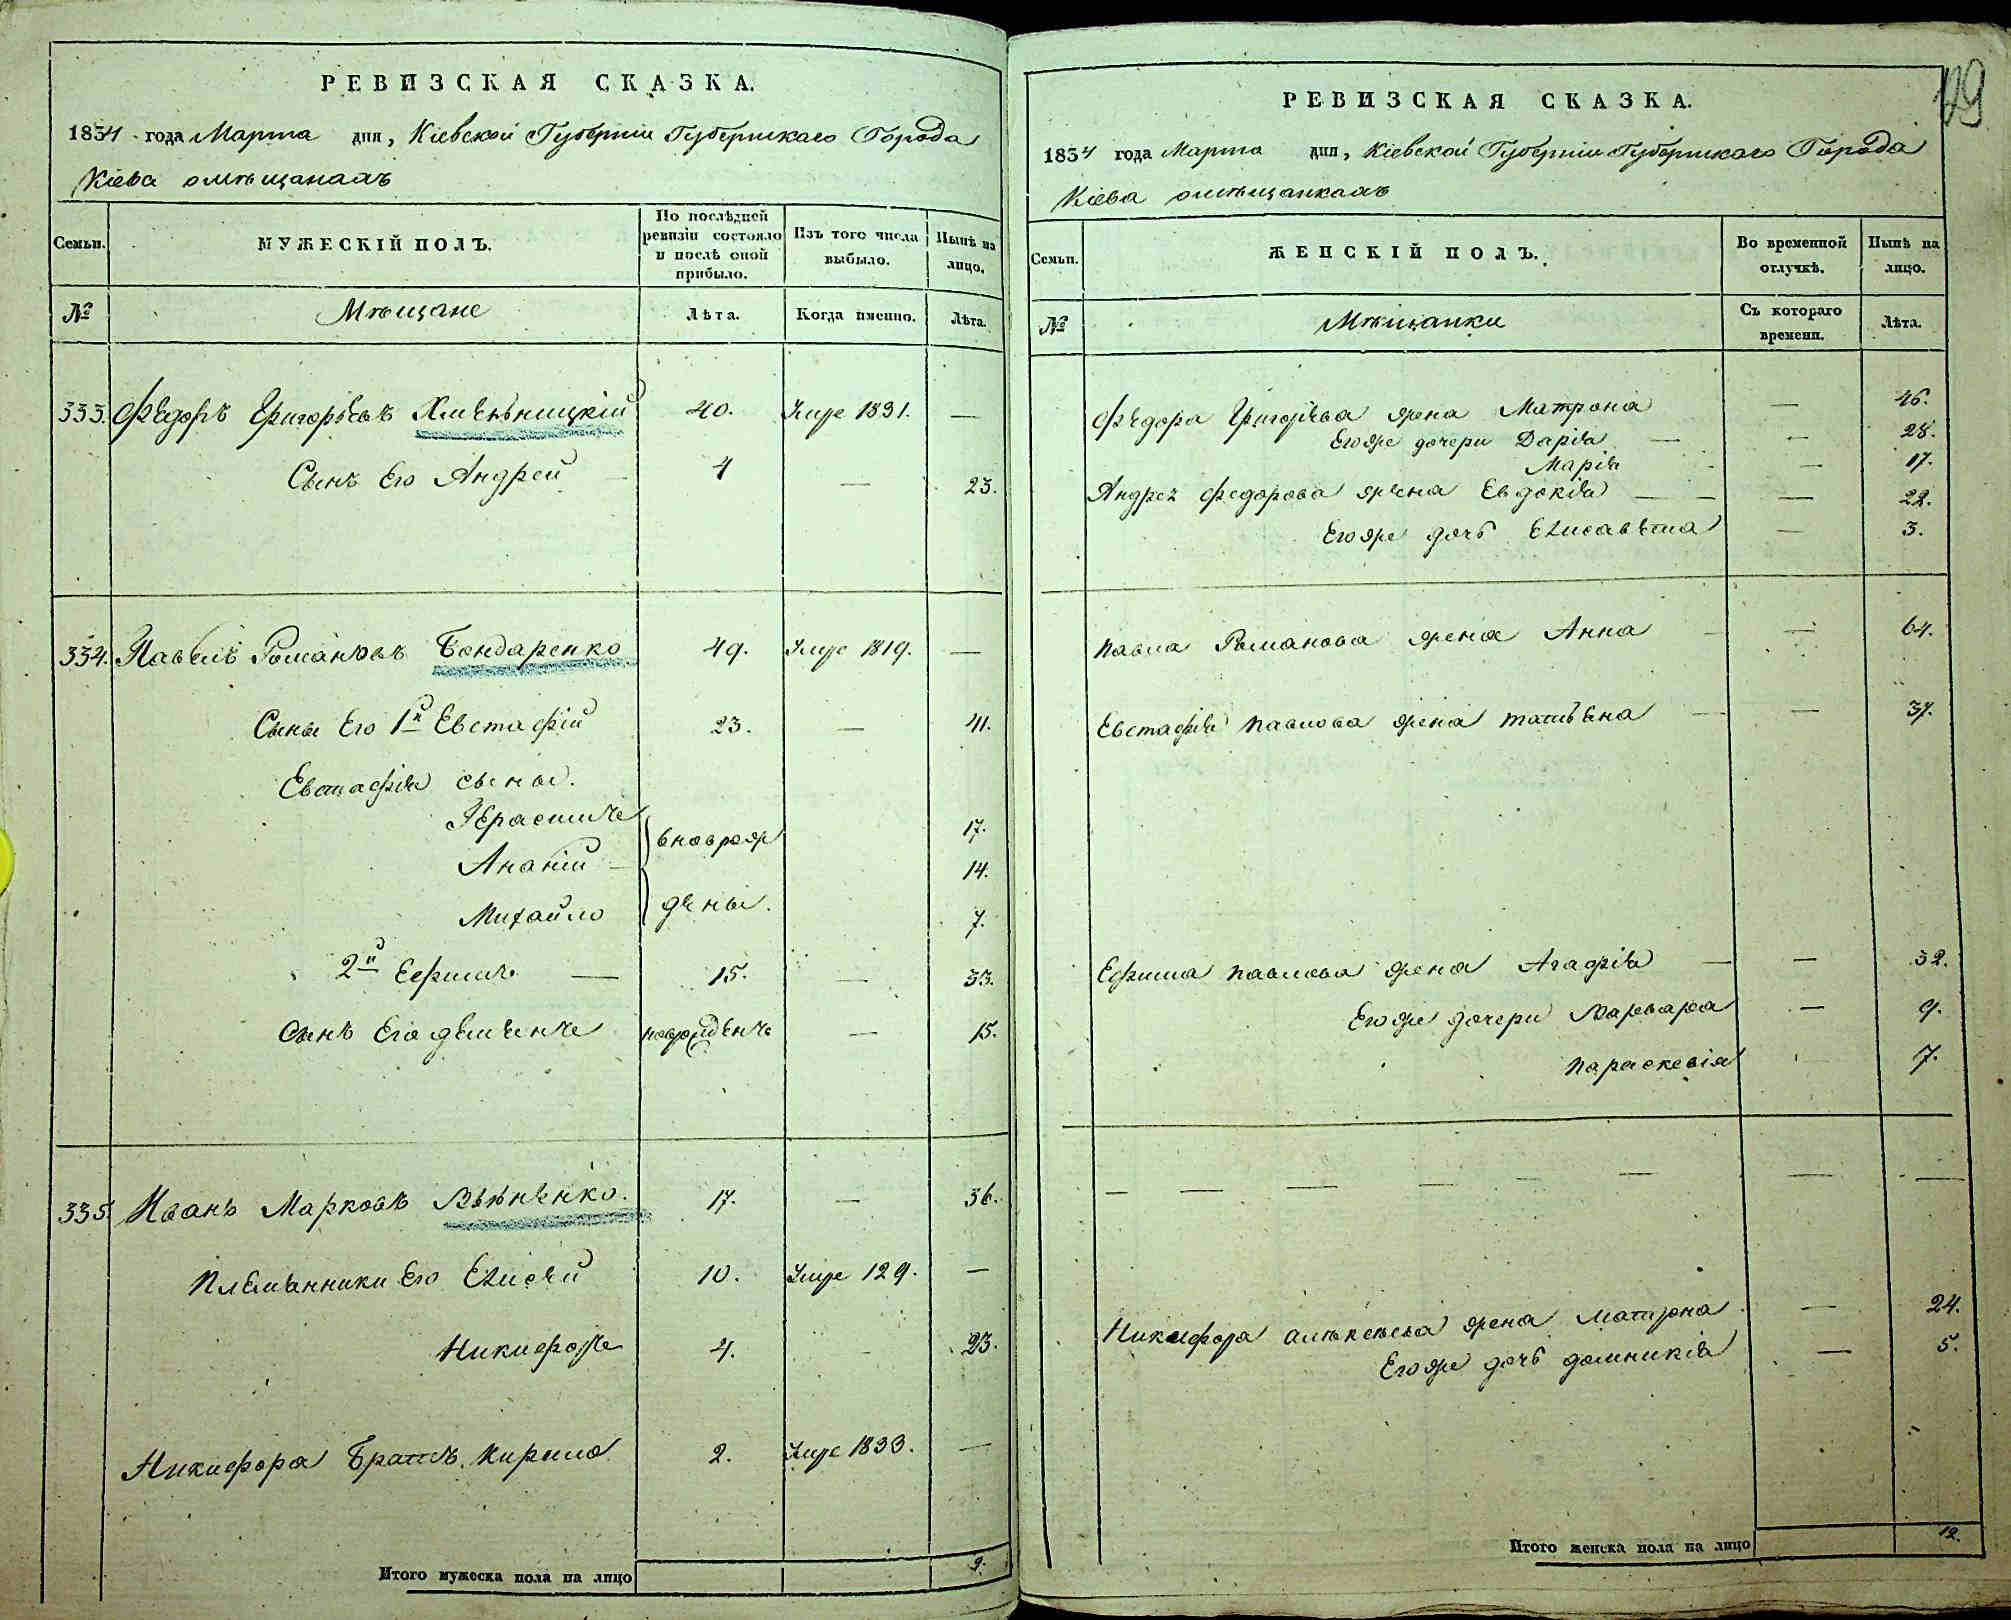 РЕВИЗСКАЯ СКАЗКА.
1834 года Марта дня, Кіевской Губерніи Губернскаго Города
Кіева омѣщанахъ
Семьи.
МУЖЕСКІЙ ПОЛЪ.
По послѣдней ревизіи состояло и послѣ оной прибыло.
Изъ того числа выбыло.
Нынѣ на лицо.
№
Мѣщане
Лѣта.
Когда именно.
Лѣта.
333. Федоръ Григорьевъ Хмельницкій 40. Умре 1831. —
Сынъ Его Андрей 4 — 23.
334. Павелъ Романовъ Бондаренко 49. Умре 1819. —
Сыны Его 1й Евстафій 23. — 41.
Евстафія сыны.
Герасимъ 17.
вноврож
Ананій — 14.
дены.
Михайло 7.
2й Ефимъ — 15. — 33.
Сынъ Его Деменъ новорожденъ — 15.
335. Иванъ Марковъ 17. — 36.
Племянники Его Елисей 10. Умре 129. —
Никифоръ 4. - 23.
Никифора Братъ Кирило 2. Умре 1833. —
Итого мужеска пола на лицо 9.
49
РЕВИЗСКАЯ СКАЗКА.
1834 года Марта дня, Кіевской Губерніи Губернскаго Города
Кіева омѣщанкахъ
Семьи.
ЖЕНСКІЙ ПОЛЪ.
Во временной отлучкѣ.
Нынѣ на лицо.
№
Мѣщанки
Съ котораго времени.
Лѣта.
Федора Григорьева жена Матрона — 46.
Егоже дочери Дарія — — 28.
Марія — 17.
Андрея Федорова жена Евдокія — — — 22.
Егоже дочь Елисавета — 3.
Павла Романова жена Анна — 64.
Евстафія Павлова жена татьяна — — 37.
Ефима Павлова жена Агафія — — 32.
Егоже дочери Варвара — 9.
Параскевія — 7.
— — — — — — — — —
Никифора алексѣева жена Матрона — 24.
Егоже дочь домникія — 5.
Итого женска пола на лицо 12.